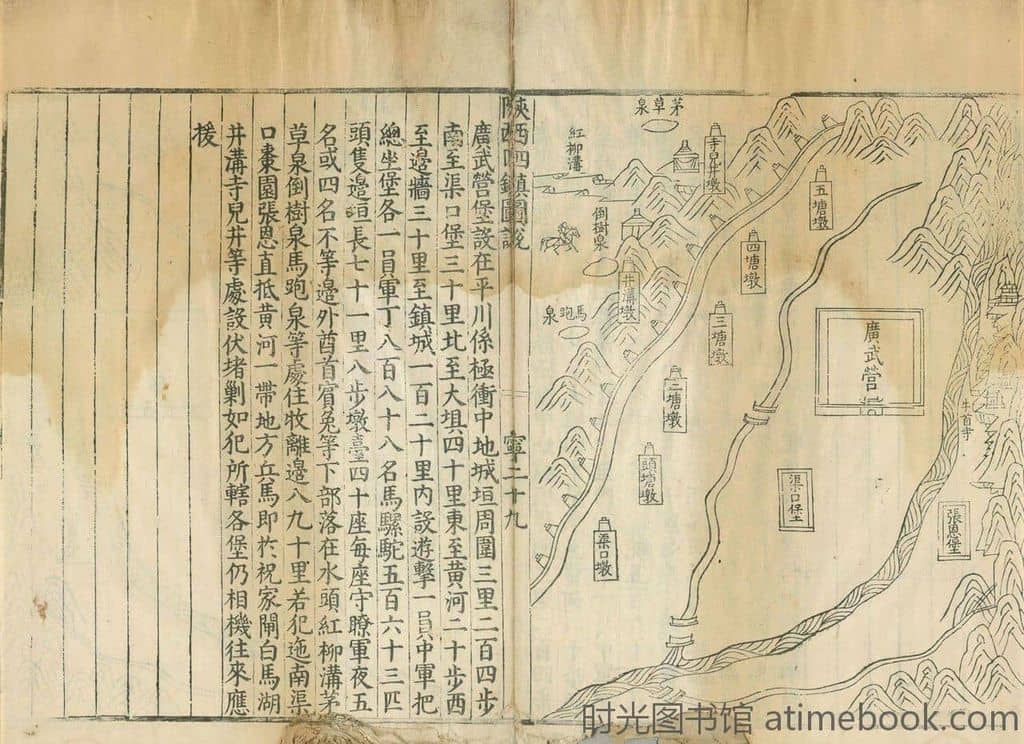 茅草泉
寺兒井墩
紅柳溝
五塘墩
倒樹泉
四塘墩
井溝墩
馬跑泉
三塘墩
廣武營
二塘墩
牛首寺
頭塘墩
渠口堡
張恩堡
渠口墩
陝西四鎮圖說
寧二十九
廣武營堡設在平川係極衝中地城垣周圍三里二百四步
南至渠口堡三十里北至大垻四十里東至黄河二十步西
至邊牆三十里至鎮城一百二十里內設遊擊一員中軍把
總坐堡各一員軍丁八百八十八名馬騾駝五百六十三匹
頭隻邊垣長七十一里八步墩臺四十座每座守瞭軍夜五
名或四名不等邊外酋首賓兔等下部落在水頭紅柳溝茅
草泉倒樹泉馬跑泉等處住牧離邊八九十里若犯迤南渠
口棗園張恩直抵黄河一帶地方兵馬即於祝家閘白馬湖
井溝寺兒井等處設伏堵剿如犯所轄各堡仍相機往來應
援
时光图书馆 atimebook.com